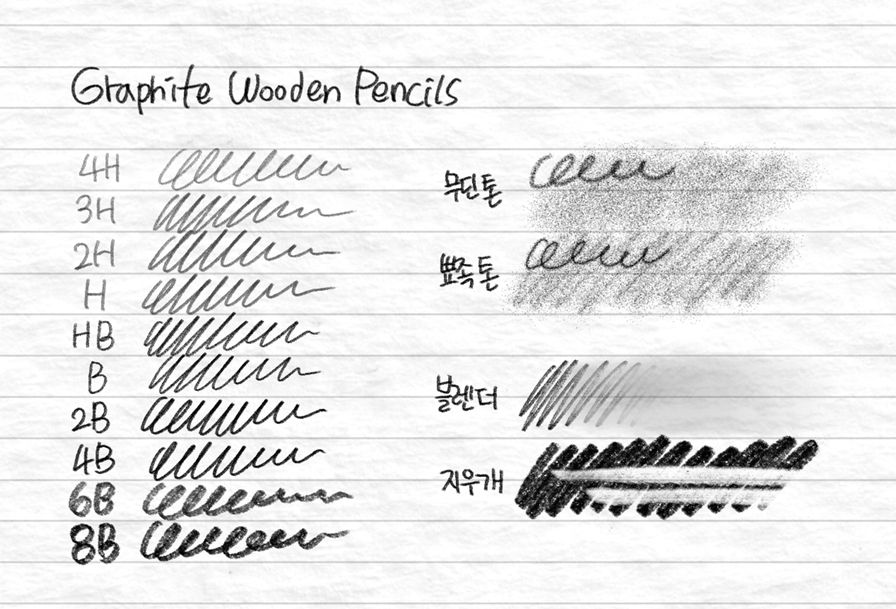 Graphite Wooden Pencils
4H
3H
2H
H
HB
B
2B
4B
6B
8B
무딘톤
뾰족톤
블렌더
지우개